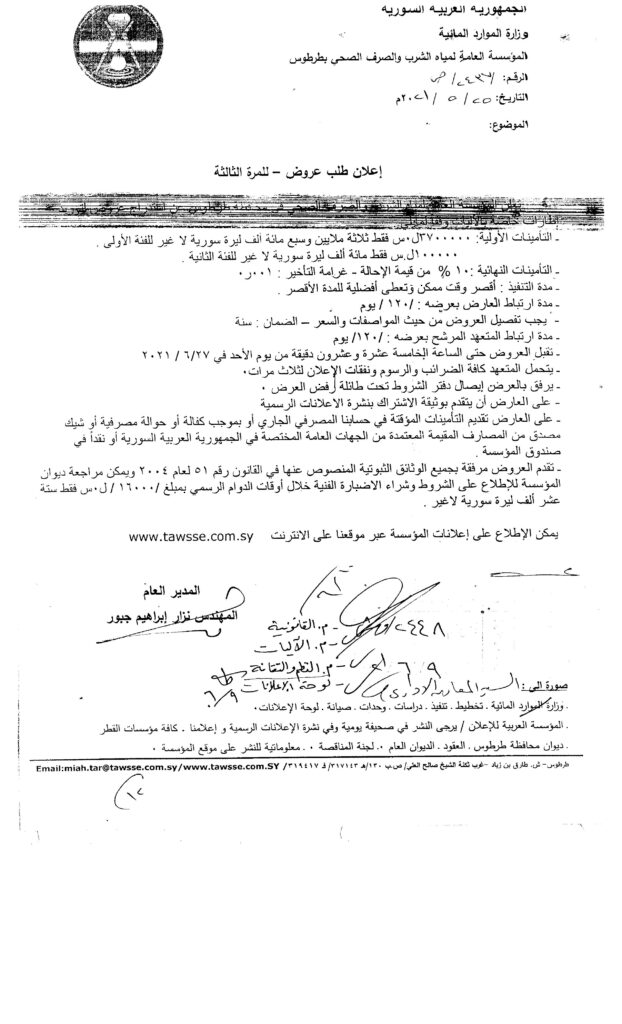 الجمهورية العربية السورية
وزارة الموارد المائية
المؤسسة العامة لمياه الشرب والصرف الصحي بطرطوس
الرقم: /ص
التاريخ: ٢٥/ ٥ /٢٠٢١م
الموضوع:
إعلان طلب عروض – للمرة الثالثة
إطارات خاصة بالآليات وفقاً لمايلي
ـ التأمينات الأولية: ٣٧٠٠٠٠٠ل٠س فقط ثلاثة ملايين وسبع مائة ألف ليرة سورية لا غير للفئة الأولى .
١٠٠٠٠٠ل.س فقط مائة ألف ليرة سورية لا غير للفئة الثانية .
ـ التأمينات النهائية : ١٠ % من قيمة الإحالة - غرامة التأخير : ٠٠١ر٠
ـ مدة التنفيذ : أقصر وقت ممكن وتعطى أفضلية للمدة الأقصر .
ـ مدة ارتباط العارض بعرضه : /١٢٠ / يوم
- يجب تفصيل العروض من حيث المواصفات والسعر – الضمان : سنة
ـ مدة ارتباط المتعهد المرشح بعرضه : /١٢٠/ يوم
ـ تقبل العروض حتى الساعة الخامسة عشرة وعشرون دقيقة من يوم الأحد في ٢٧/ ٦/ ٢٠٢١
ـ يتحمل المتعهد كافة الضرائب والرسوم ونفقات الإعلان لثلاث مرات٠
ـ يرفق بالعرض إيصال دفتر الشروط تحت طائلة رفض العرض ٠
ـ على العارض أن يتقدم بوثيقة الاشتراك بنشرة الاعلانات الرسمية
ـ على العارض تقديم التأمينات المؤقتة في حسابنا المصرفي الجاري أو بموجب كفالة أو حوالة مصرفية أو شيك
مصدق من المصارف المقيمة المعتمدة من الجهات العامة المختصة في الجمهورية العربية السورية أو نقداً في
صندوق المؤسسة .
ـ تقدم العروض مرفقة بجميع الوثائق الثبوتية المنصوص عنها في القانون رقم ٥١ لعام ٢٠٠٤ ويمكن مراجعة ديوان
المؤسسة للإطلاع على الشروط وشراء الاضبارة الفنية خلال أوقات الدوام الرسمي بمبلغ /١٦٠٠٠ / ل٠س فقط ستة
عشر ألف ليرة سورية لاغير .
يمكن الإطلاع على إعلانات المؤسسة عبر موقعنا على الانترنت www.tawsse.com.sy
المدير العام
المهندس نزار إبراهيم جبور
٢٤٤٨
- م. القانونية
- م. الآليات
- م. النظم والتقانة
- لوحة الإعلانات
٦/٩
صورة الى : السيد المعاون الإداري
ـ وزارة الموارد المائية . تخطيط . تنفيذ . دراسات . وحدات . صيانة . لوحة الإعلانات٠
. المؤسسة العربية للإعلان / يرجى النشر في صحيفة يومية وفي نشرة الإعلانات الرسمية و إعلامنا . كافة مؤسسات القطر
. ديوان محافظة طرطوس . العقود . الديوان العام ٠ لجنة المناقصة ٠ . معلوماتية للنشر على موقع المؤسسة ٠
طرطوس – ش. طارق بن زياد –غرب ثكنة الشيخ صالح العلي/ ص.ب ١٣٠/هـ ٣١٧١٤٣/ ف ٣١٩٤١٧/ Email:miah.tar@tawsse.com.sy/www.tawsse.com.SY